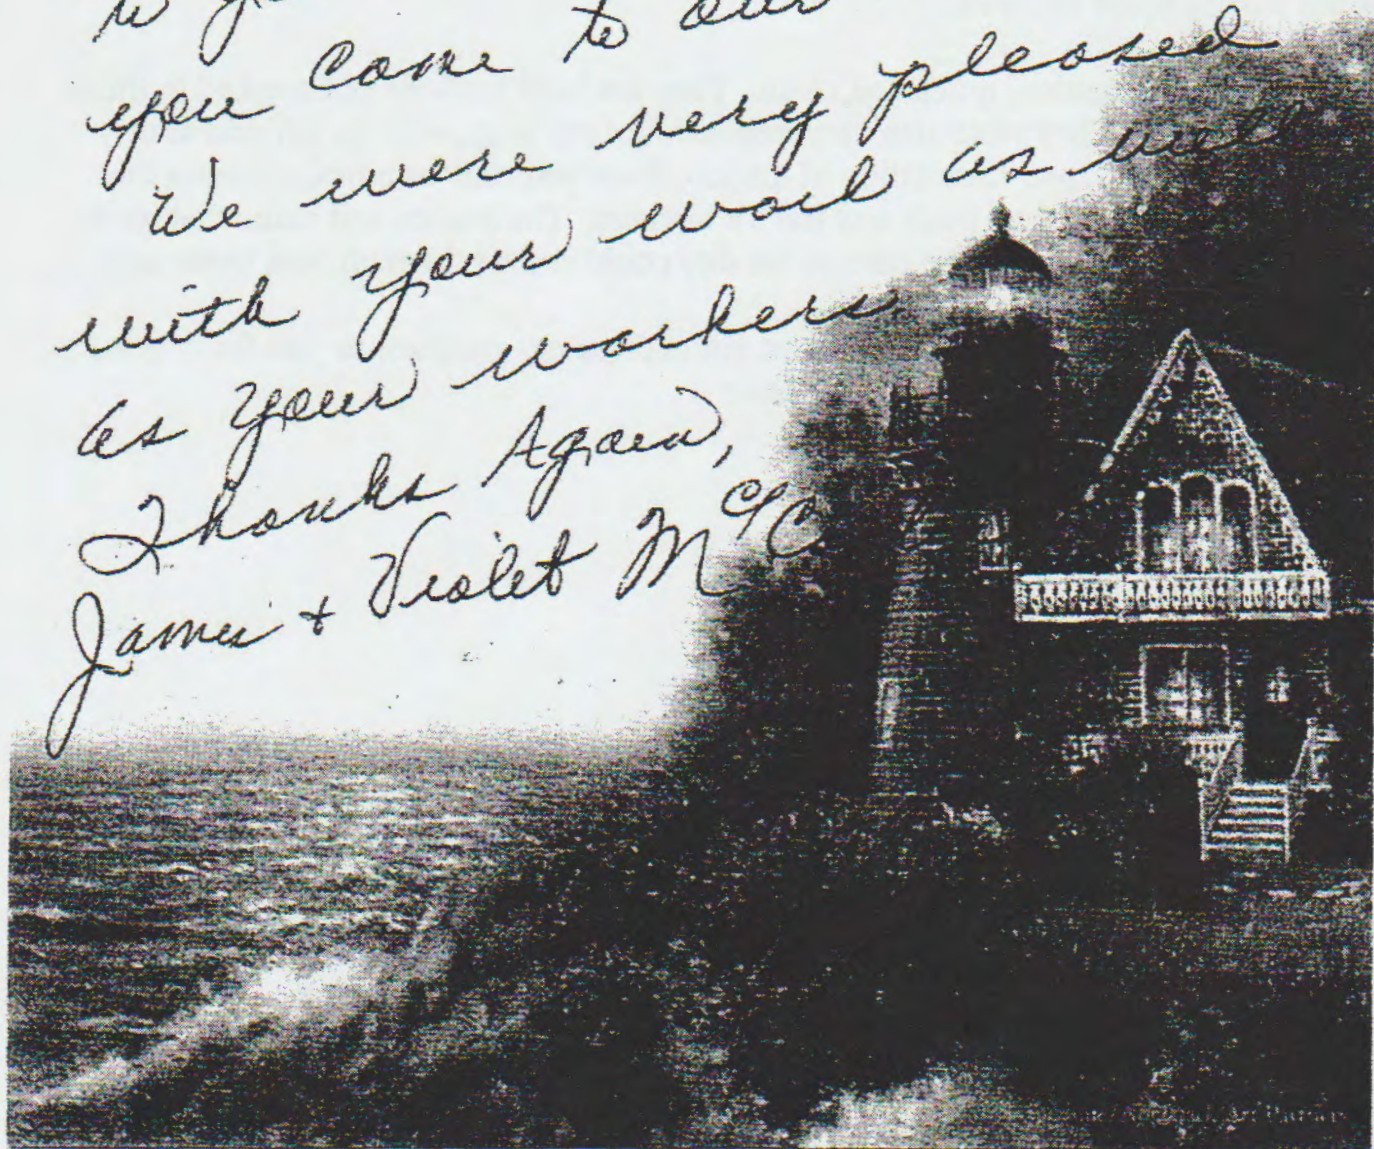 you come to our
We were very pleased
with your work as well
as your workers
Thanks Again,
James + Violet McC